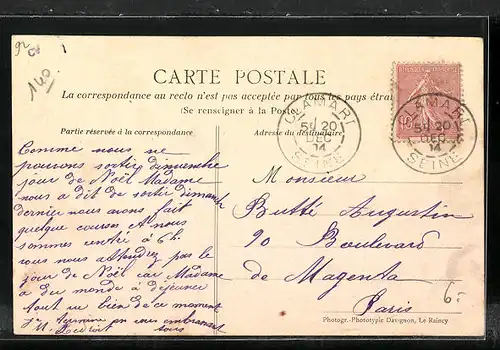 92
140
CARTE POSTALE
La correspondance au recto n'est pas acceptée par tous les pays étran
(Se renseigner à la Poste)
CLAMART
5E 20
DEC
14
SEINE
CLAMART
5E 20
DEC
14
SEINE
Partie réservée à la correspondance
Comme nous ne
pouvons sortir dimanche
jour de Noël Madame
nous a dit de sortir dimanch
dernier nous avons fait
quelque courses et nous
sommes rentré à 6h.
vous nous attendiez pas le
jour de Noël car Madame
a du monde à déjeuner
tout va bien de ce moment
Germaine vous embrassant
tous
Adresse du destinataire
Monsieur
Butté Augustin
90 Boulevard
de Magenta
Paris
6-
Photogr.-Phototypie Davignon, Le Raincy